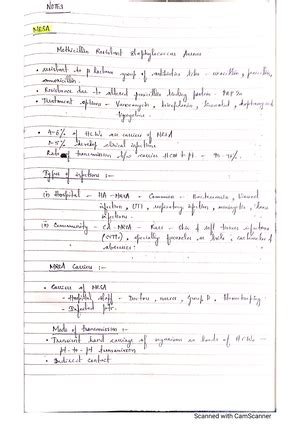 NOTES
MRSA
Methicillin Resistant Staphylococcus Aureus
• resistant to β lactam group of antibiotics like - oxacillin, penicillin,
amoxicillin.
• Resistance due to altered penicillin binding protein - PBP 2a
• Treatment options - Vancomycin, teicoplanin, linezolid, daptomycin,
tigecycline.
• HCWs are carriers of MRSA
develop clinical infections
Rate of transmission b/w carrier HCW to Pt -
Types of infections :-
in Hospital - HA-MRSA - Common - Bacteraemia, Wound
infection, UTI, respiratory infection, meningitis, bone
infections.
in Community - CA-MRSA - Rare - skin & soft tissue infections
(SSTIs), specially furuncles or boils, carbuncles &
abscesses.
MRSA Carriers :-
• Carriers of MRSA
- Hospital staff - Doctors, nurses, Group D, Housekeeping -
- Infected pts.
Mode of transmission :-
• Transient hand carriage of organism on hands of HCWs -
pt-to-pt transmission
• Indirect contact
Scanned with CamScanner